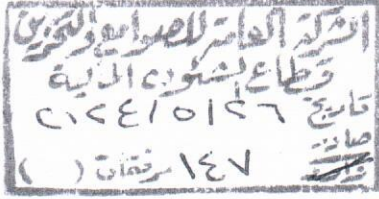 الشركة العامة للصوامع والتخزين
قطاع الشئون المالية
تاريخ ٢٠٢٤/٥/٢٦
صادر ١٤٧ مرفقات ( )
وارد